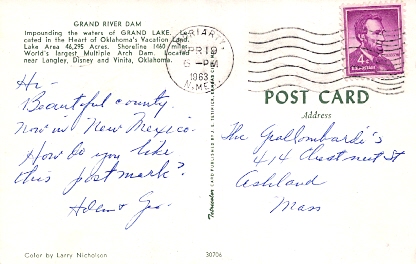 GRAND RIVER DAM
Impounding the waters of GRAND LAKE. Lo-
cated in the Heart of Oklahoma's Vacation Land.
Lake Area 46,295 Acres. Shoreline 1460 miles.
World's largest Multiple Arch Dam. Located
near Langley, Disney and Vinita, Oklahoma.
APR 19
PM
1963
N. MEX.
4¢
Hi-
Beautiful country.
Now in New Mexico.
How do you like
this postmark?
POST CARD
Address
The Gallombardi's
414 Chestnut St
Ashland
Mass
Color by Larry Nicholson
30706